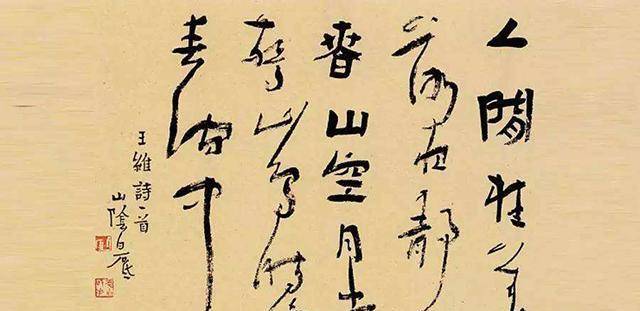 人閒桂花
落夜靜
春山空月出
驚山鳥時
春澗中
王維詩一首
山陰白砥